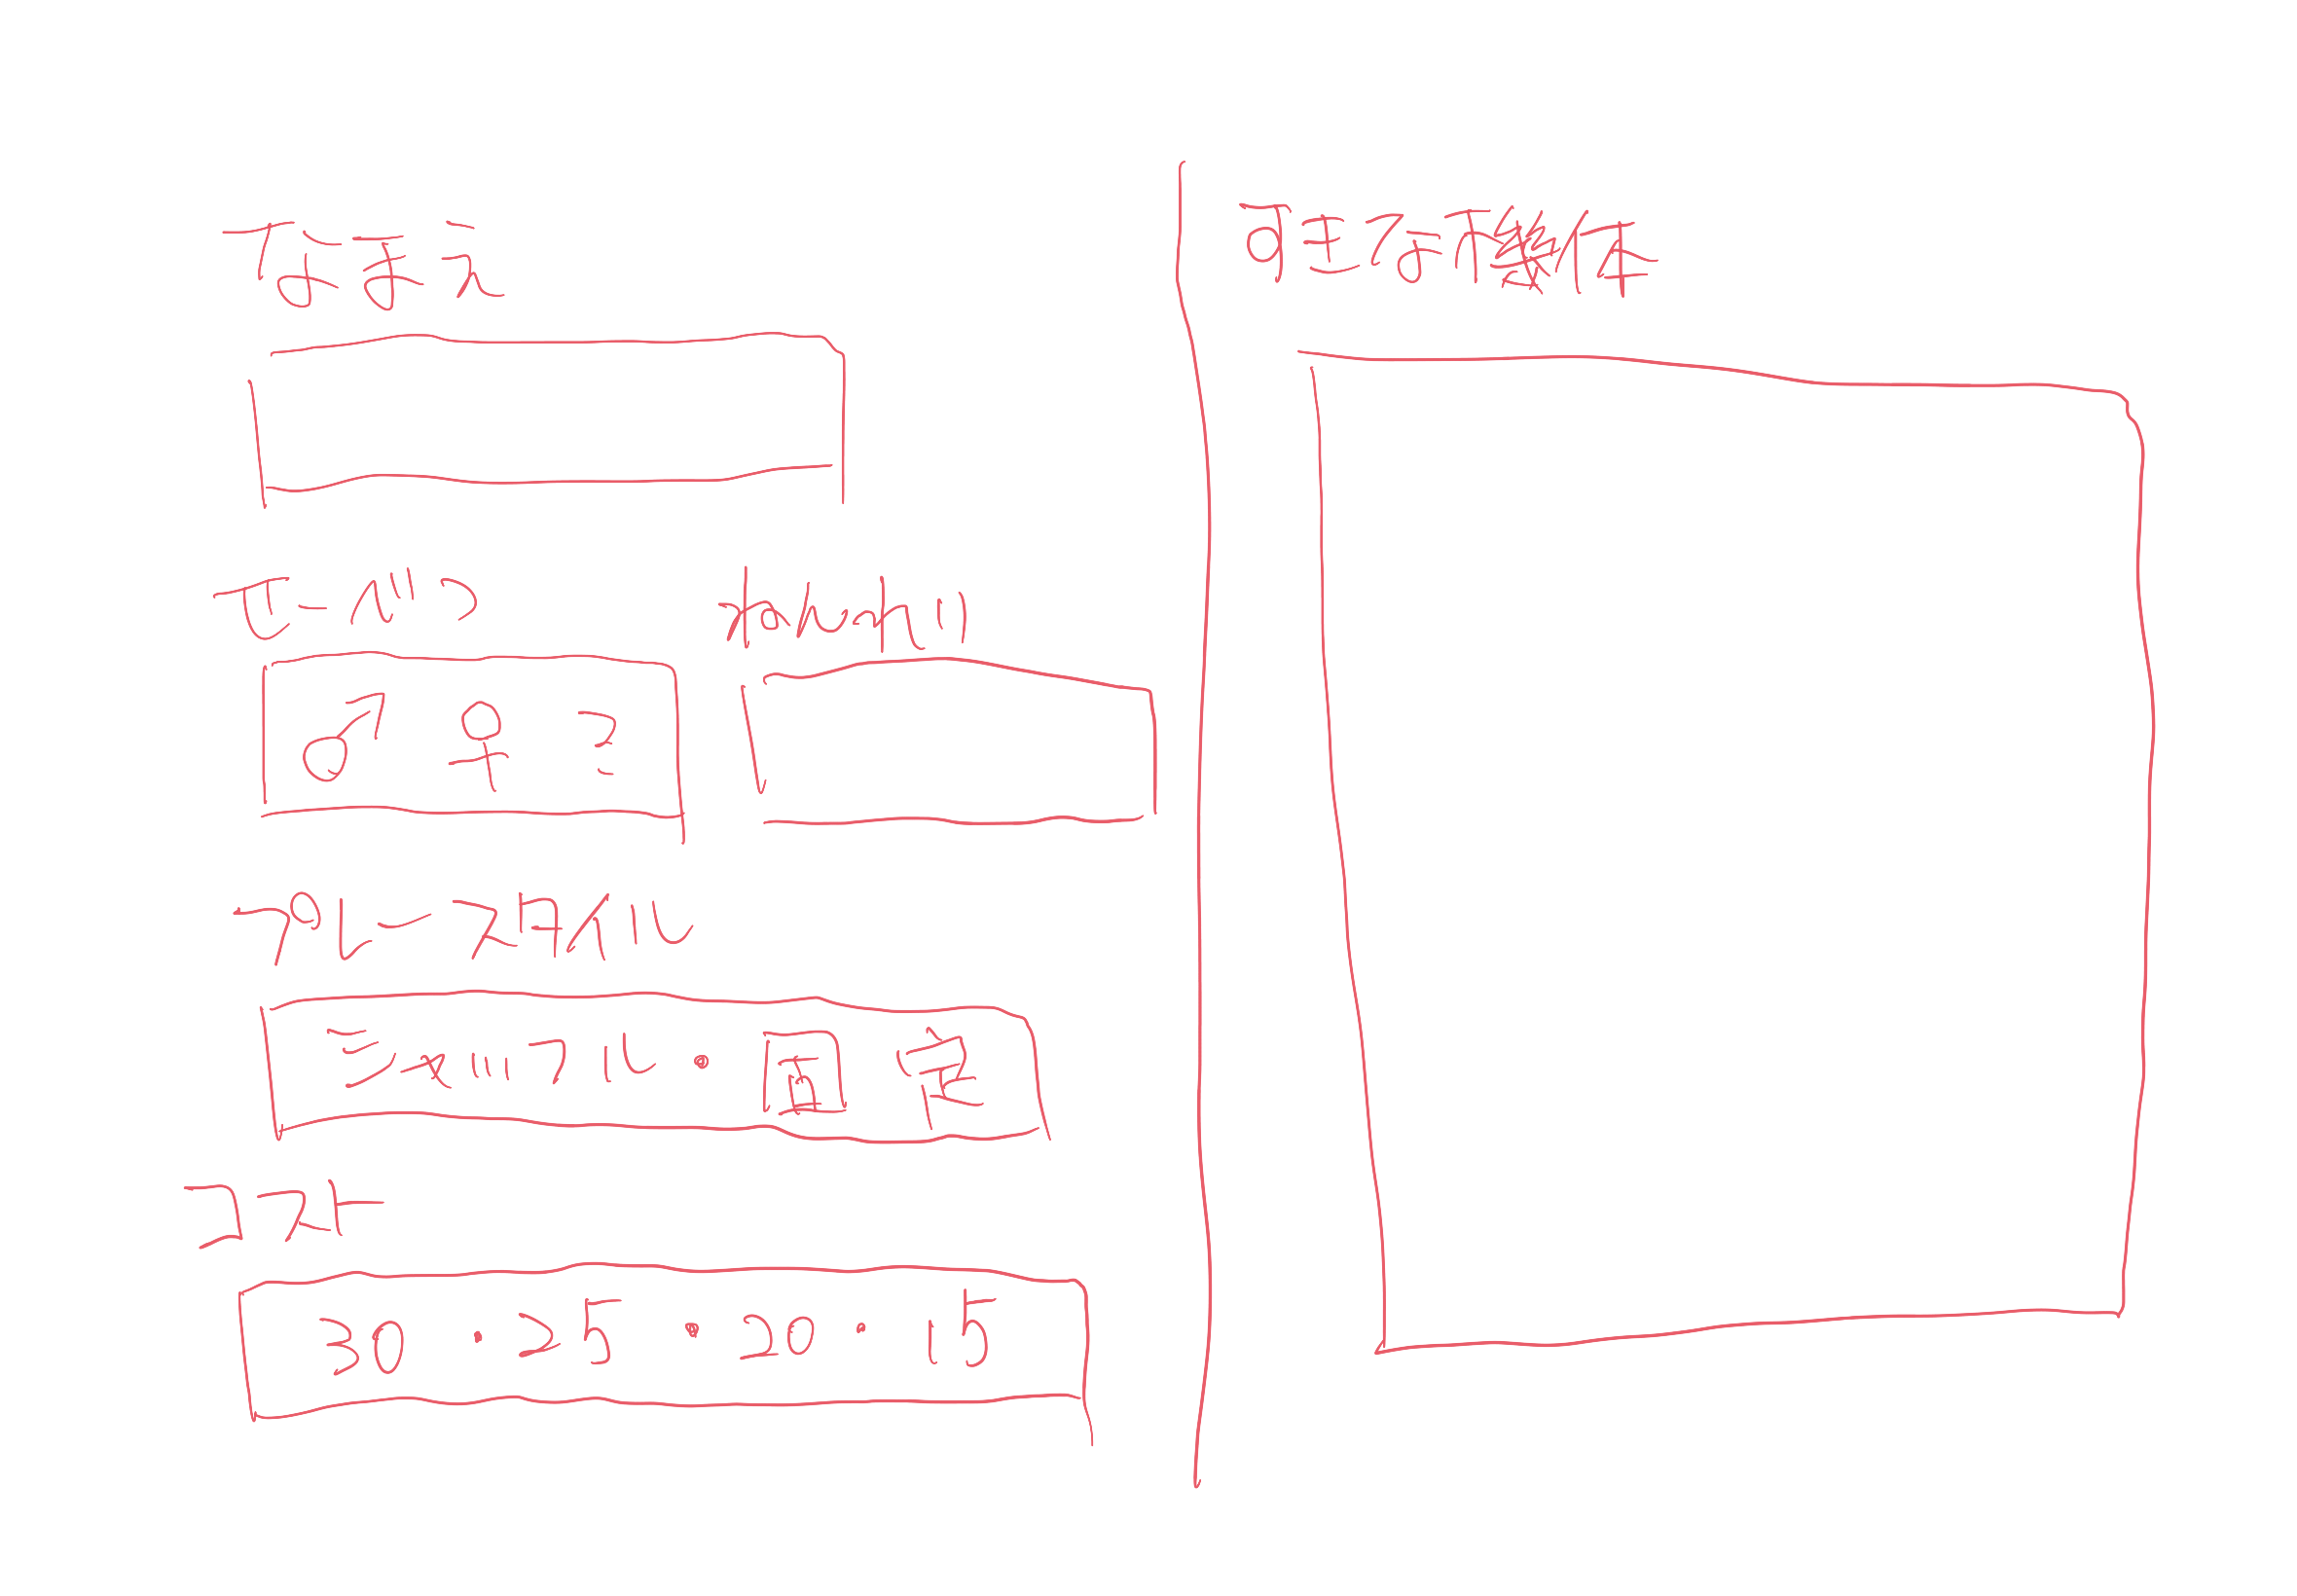 なまえ
せーべつ
♂ ♀ ?
ねんれい
プレースタイル
シャッフル・固定
コスト
30・25・20・15
すきな機体